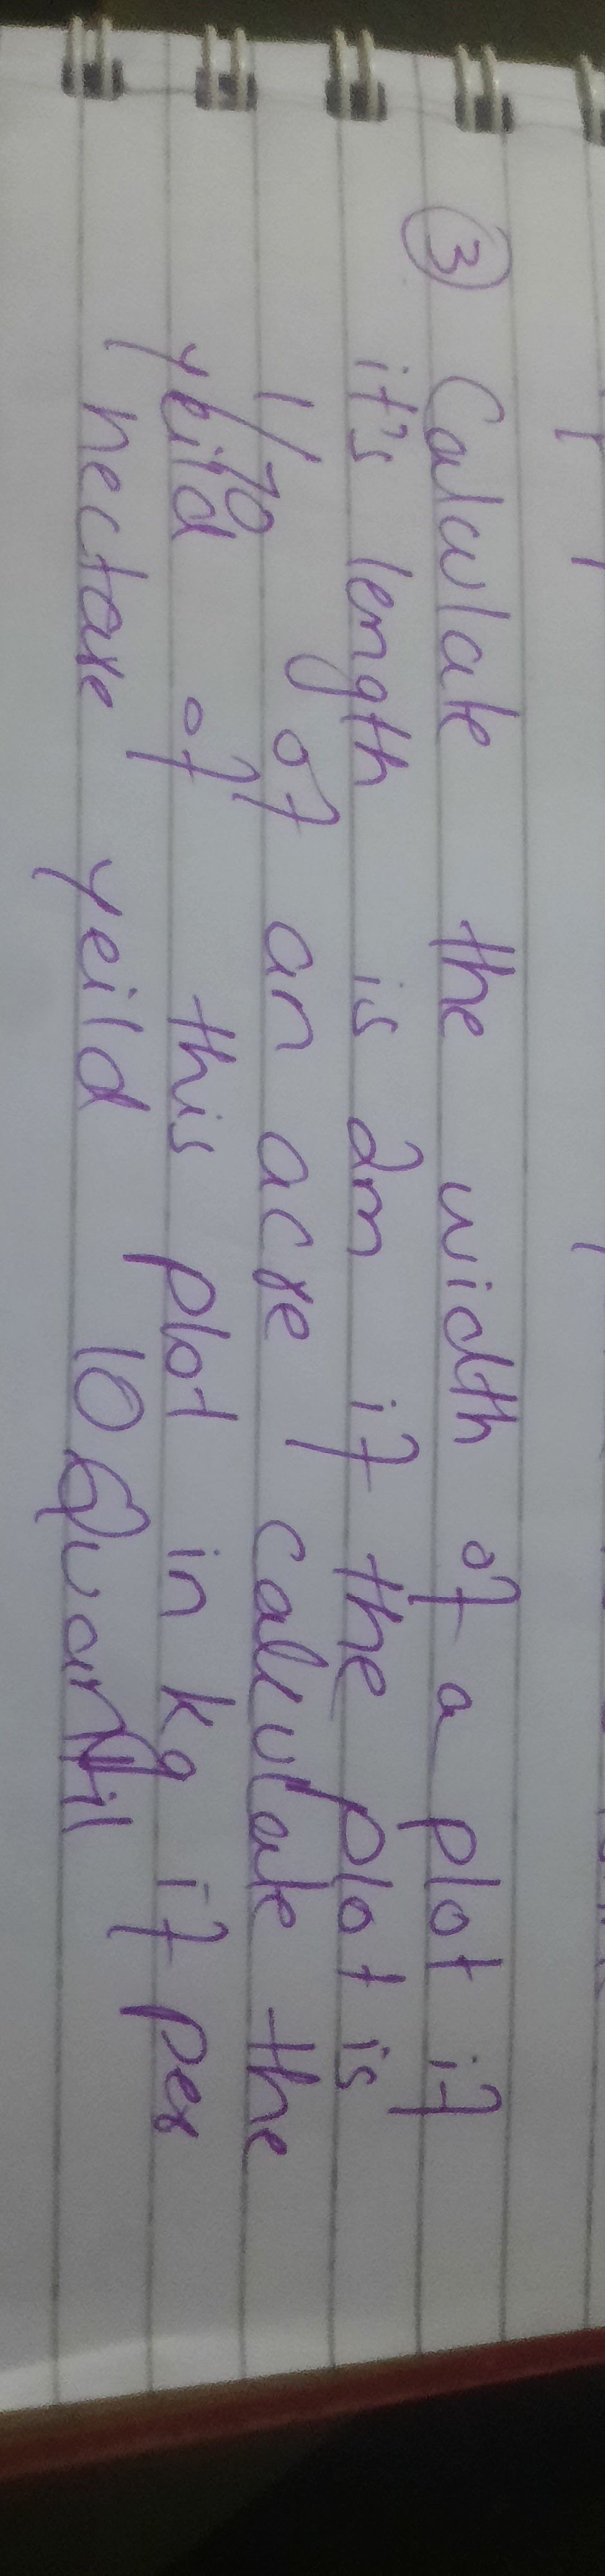 ③ Calculate the width of a plot if
it's length is 2m if the plot is
1/70 of an acre calculate the
yeild of this plot in kg if per
hectare yeild 10 Quantil